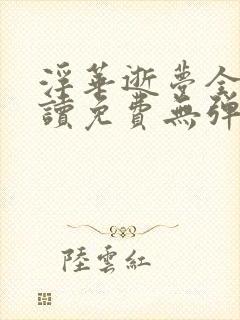 淫華逝夢全
讀免費無彈
陸雲紅